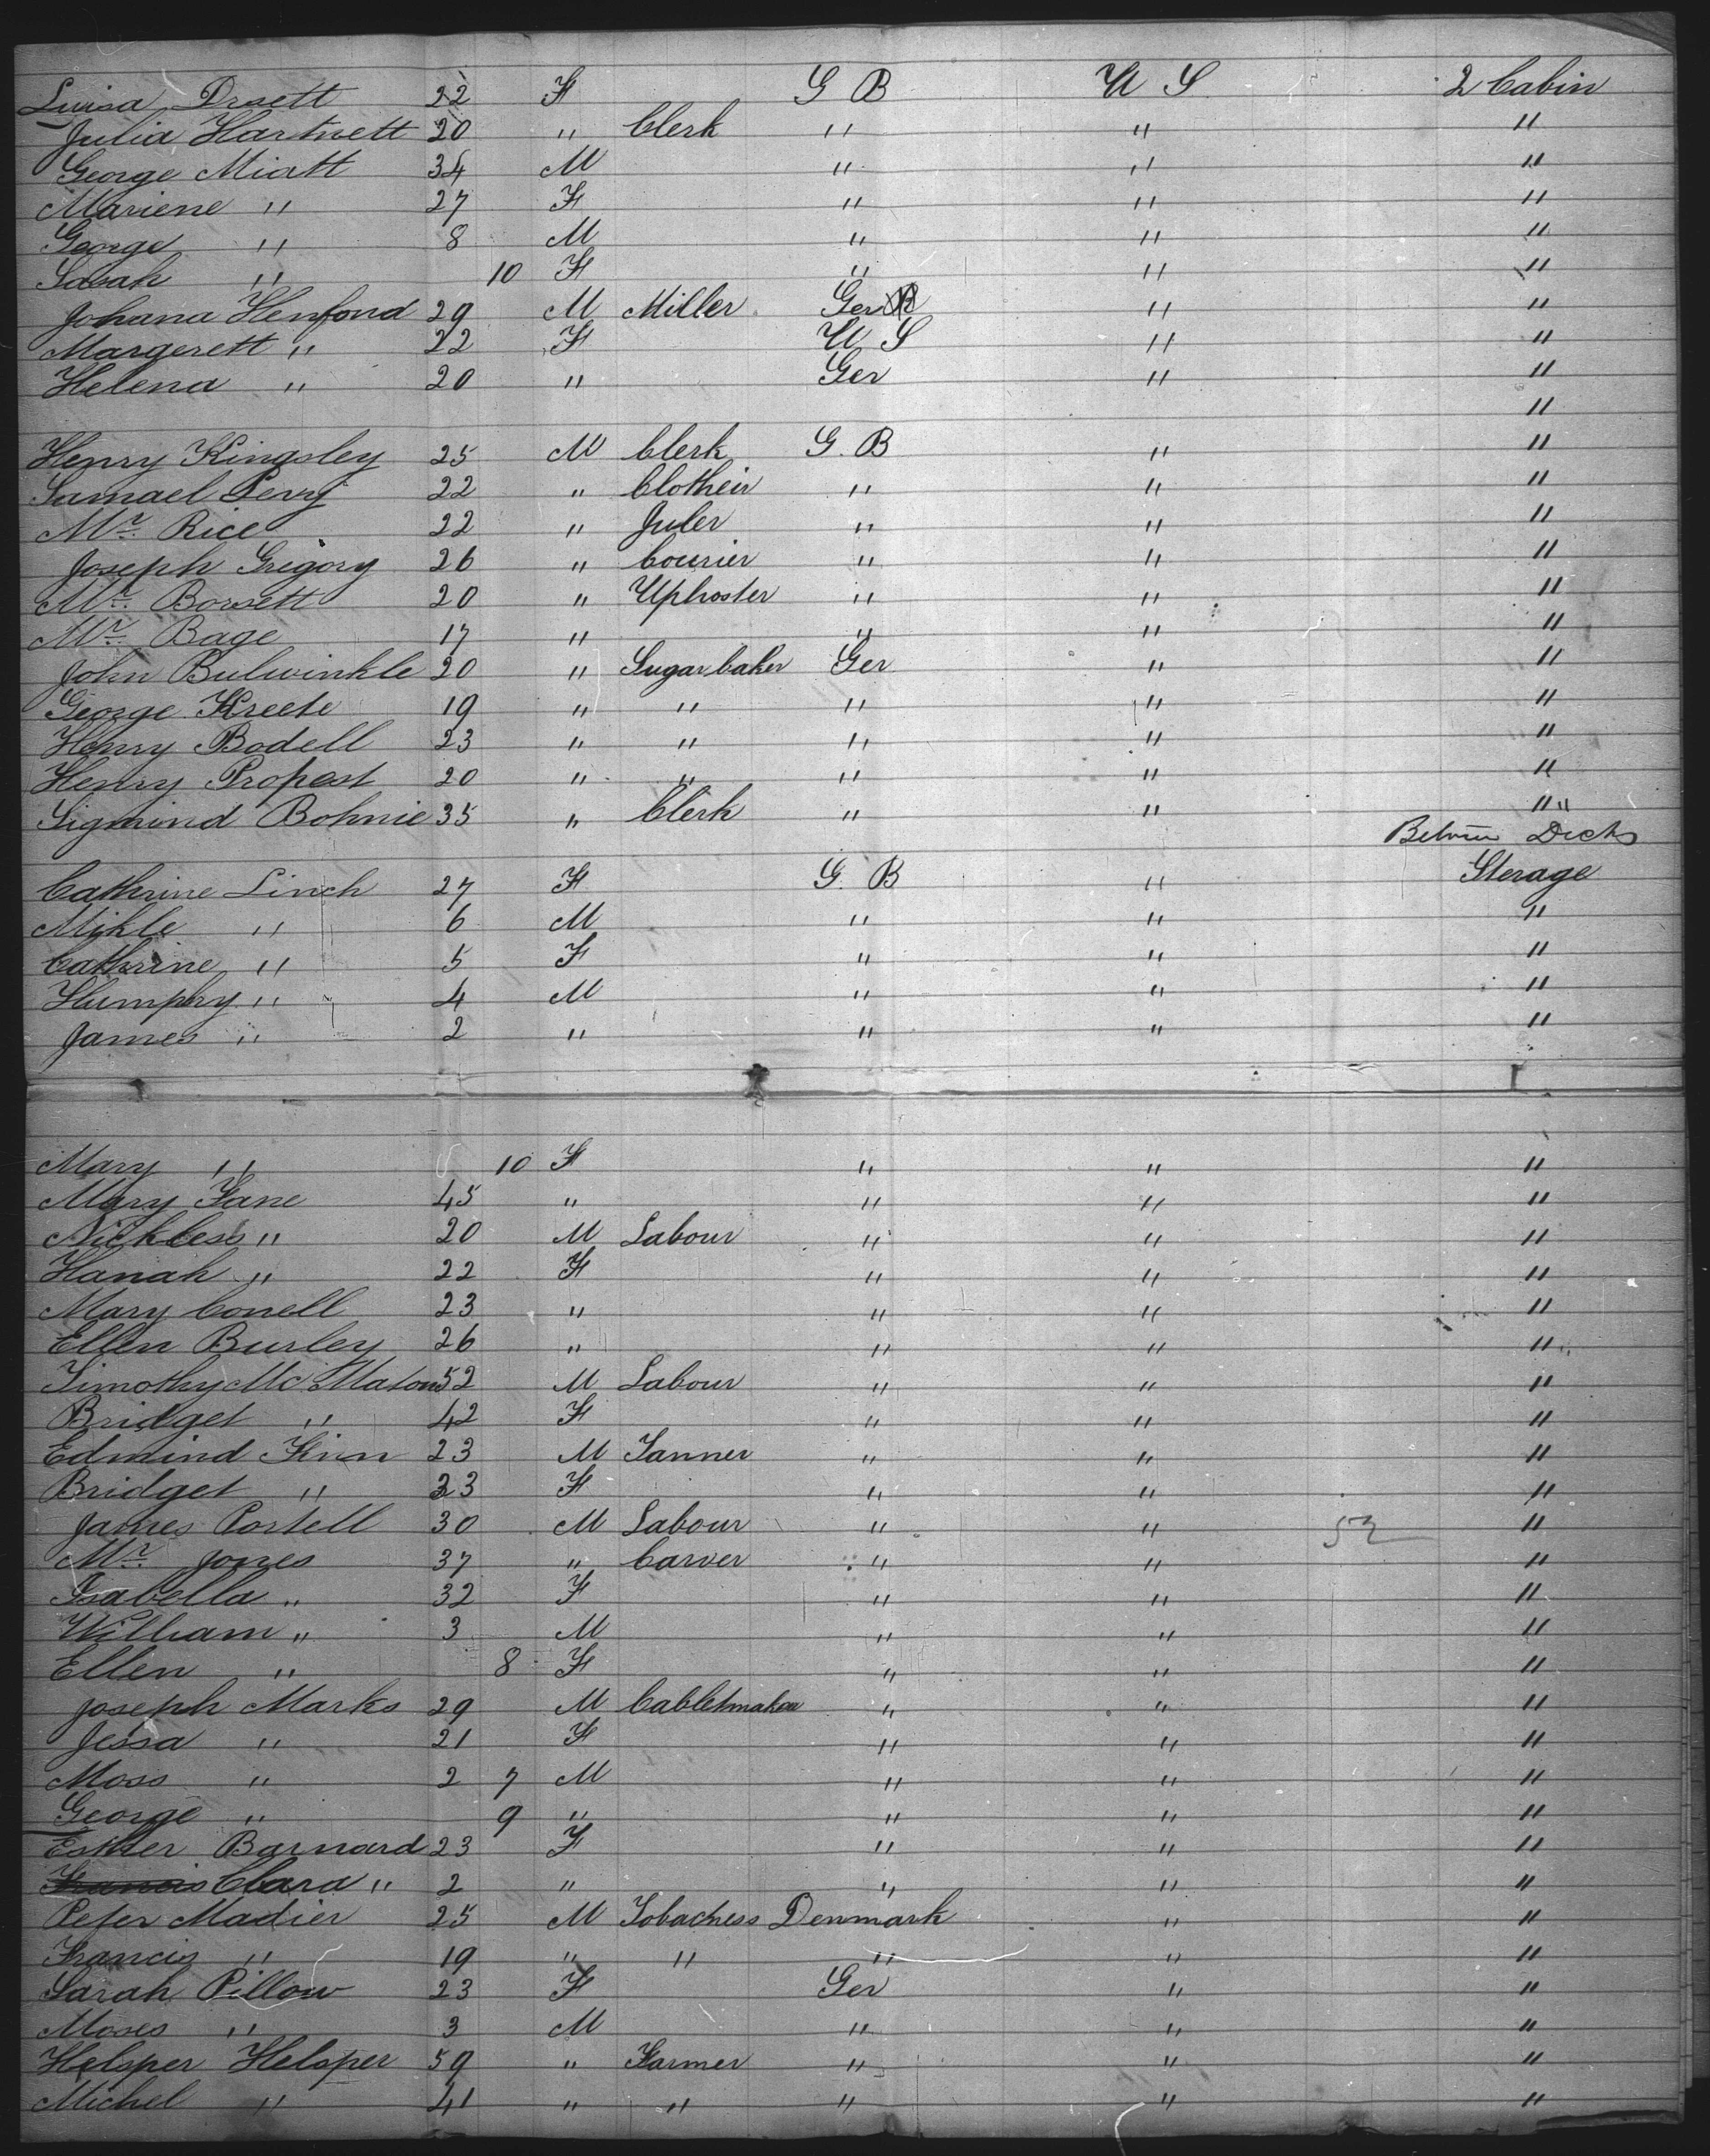 Luisa Drsett 22 F G B U S 2 Cabin
Julia Hartnett 20 " Clerk " " "
George Miatt 34 M " " "
Mariene " 27 F " " "
George " 8 M " " "
Sarah " 10 F " " "
Johana Henfond 29 M Miller Ger " "
Margerett " 22 F U S " "
Helena " 20 " Ger " "
"
Henry Kingsley 25 M Clerk G. B " "
Samael Perry 22 " Clotheir " " "
Mr. Rice 22 " Juler " " "
Joseph Grigory 26 " Courier " " "
Mr. Borsett 20 " Uphoster " " "
Mr. Bage 17 " " " "
John Bulwinkle 20 " Sugar baker Ger " "
George Kreete 19 " " " " "
Henry Bodell 23 " " " " "
Henry Propest 20 " " " " "
Sigmind Bohnie 35 " Clerk " " "
Betwin Decks
Cathrine Linch 27 F G. B " Sterage
Mikle " 6 M " " "
Cathrine " 5 F " " "
Humphry " 4 M " " "
James " 2 " " " "
Mary " 10 F " " "
Mary Fane 45 " " " "
Nickless " 20 M Labour " " "
Hanah " 22 F " " "
Mary Conell 23 " " " "
Ellen Burley 26 " " " "
Timothy Mc Maton 52 M Labour " " "
Bridget " 42 F " " "
Edmind Finn 23 M Tanner " " "
Bridget " 23 F " " "
James Portell 30 M Labour " " 52 "
Mr. Jones 37 " Carver " " "
Isabella " 32 F " " "
William " 3 M " " "
Ellen " 8 F " " "
Joseph Marks 29 M Cabletmaker " " "
Jessa " 21 F " " "
Moss " 2 7 M " " "
George " 9 " " " "
Esther Barnard 23 F " " "
Francis Clara " 2 " " " "
Peter Madier 25 M Tobachess Denmark " "
Francis " 19 " " " " "
Sarah Pillow 23 F Ger " "
Moses " 3 M " " "
Helsper Helsper 59 " Farmer " " "
Michel " 41 " " " " "